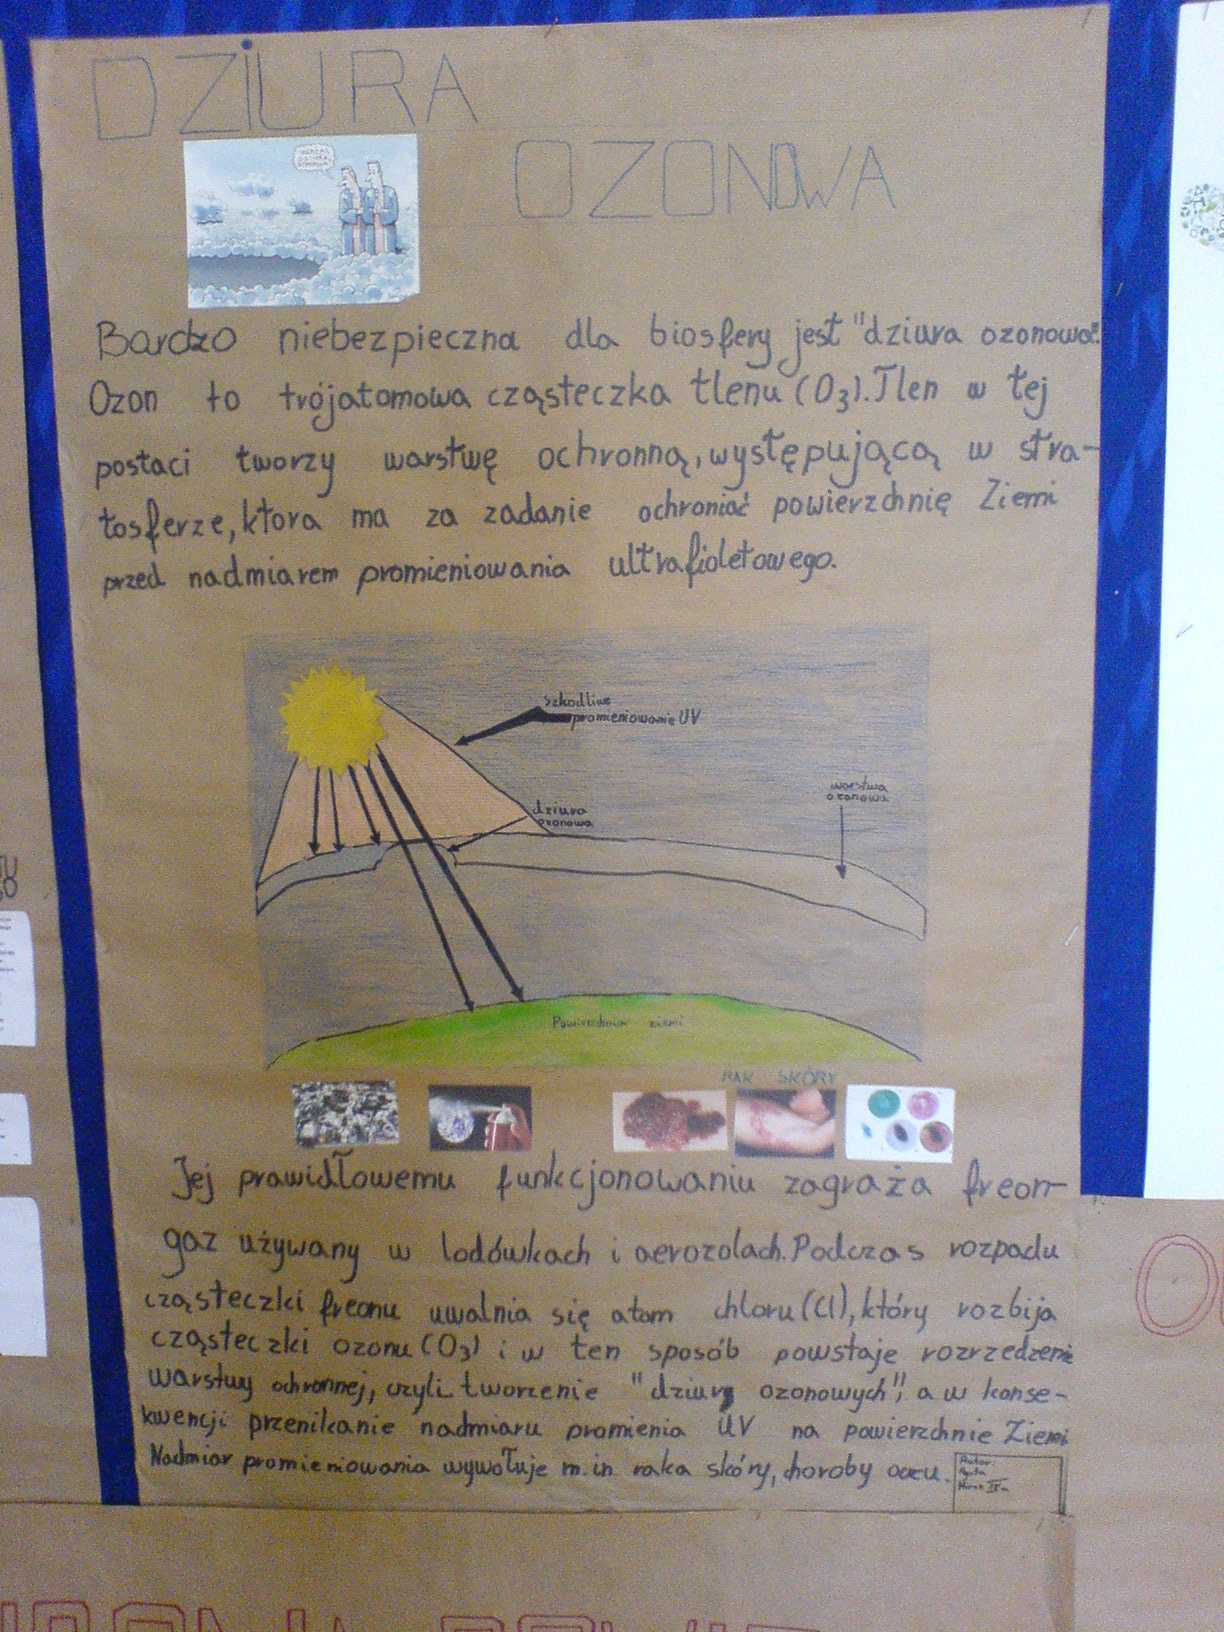 DZiURA
OZONOWA
Bardzo niebezpieczna dla biosfery jest "dziura ozonowa".
Ozon to trójatomowa cząsteczka tlenu (O3). Tlen w tej
postaci tworzy warstwę ochronną, występującą w stra-
tosferze, ktora ma za zadanie ochroniać powierzchnię Ziemi
przed nadmiarem promieniowania ultrafioletowego.
szkodliwe
promieniowanie UV
dziura
ozonowa
warstwa
ozonowa
Powierzchnia ziemi
RAK SKÓRY
Jej prawidłowemu funkcjonowaniu zagraża freon-
gaz używany w lodówkach i aerozolach. Podczas rozpadu
cząsteczki freonu uwalnia się atom chloru (Cl), który rozbija
cząsteczki ozonu (O3) i w ten sposób powstaje rozrzedzenie
warstwy ochronnej, czyli tworzenie "dziury ozonowych", a w konse-
kwencji przenikanie nadmiaru promienia UV na powierzchnie Ziemi
Nadmiar promieniowania wywołuje m.in. raka skóry, choroby oczu.
Autor: